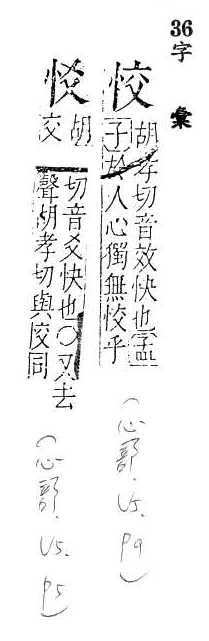 36字彙
恔
胡孝切音效快也孟
子於人心獨無恔乎
(心部.V5.P9)
胡交
切音爻快也○又去
聲胡孝切與恔同
(心部.V5.P5)